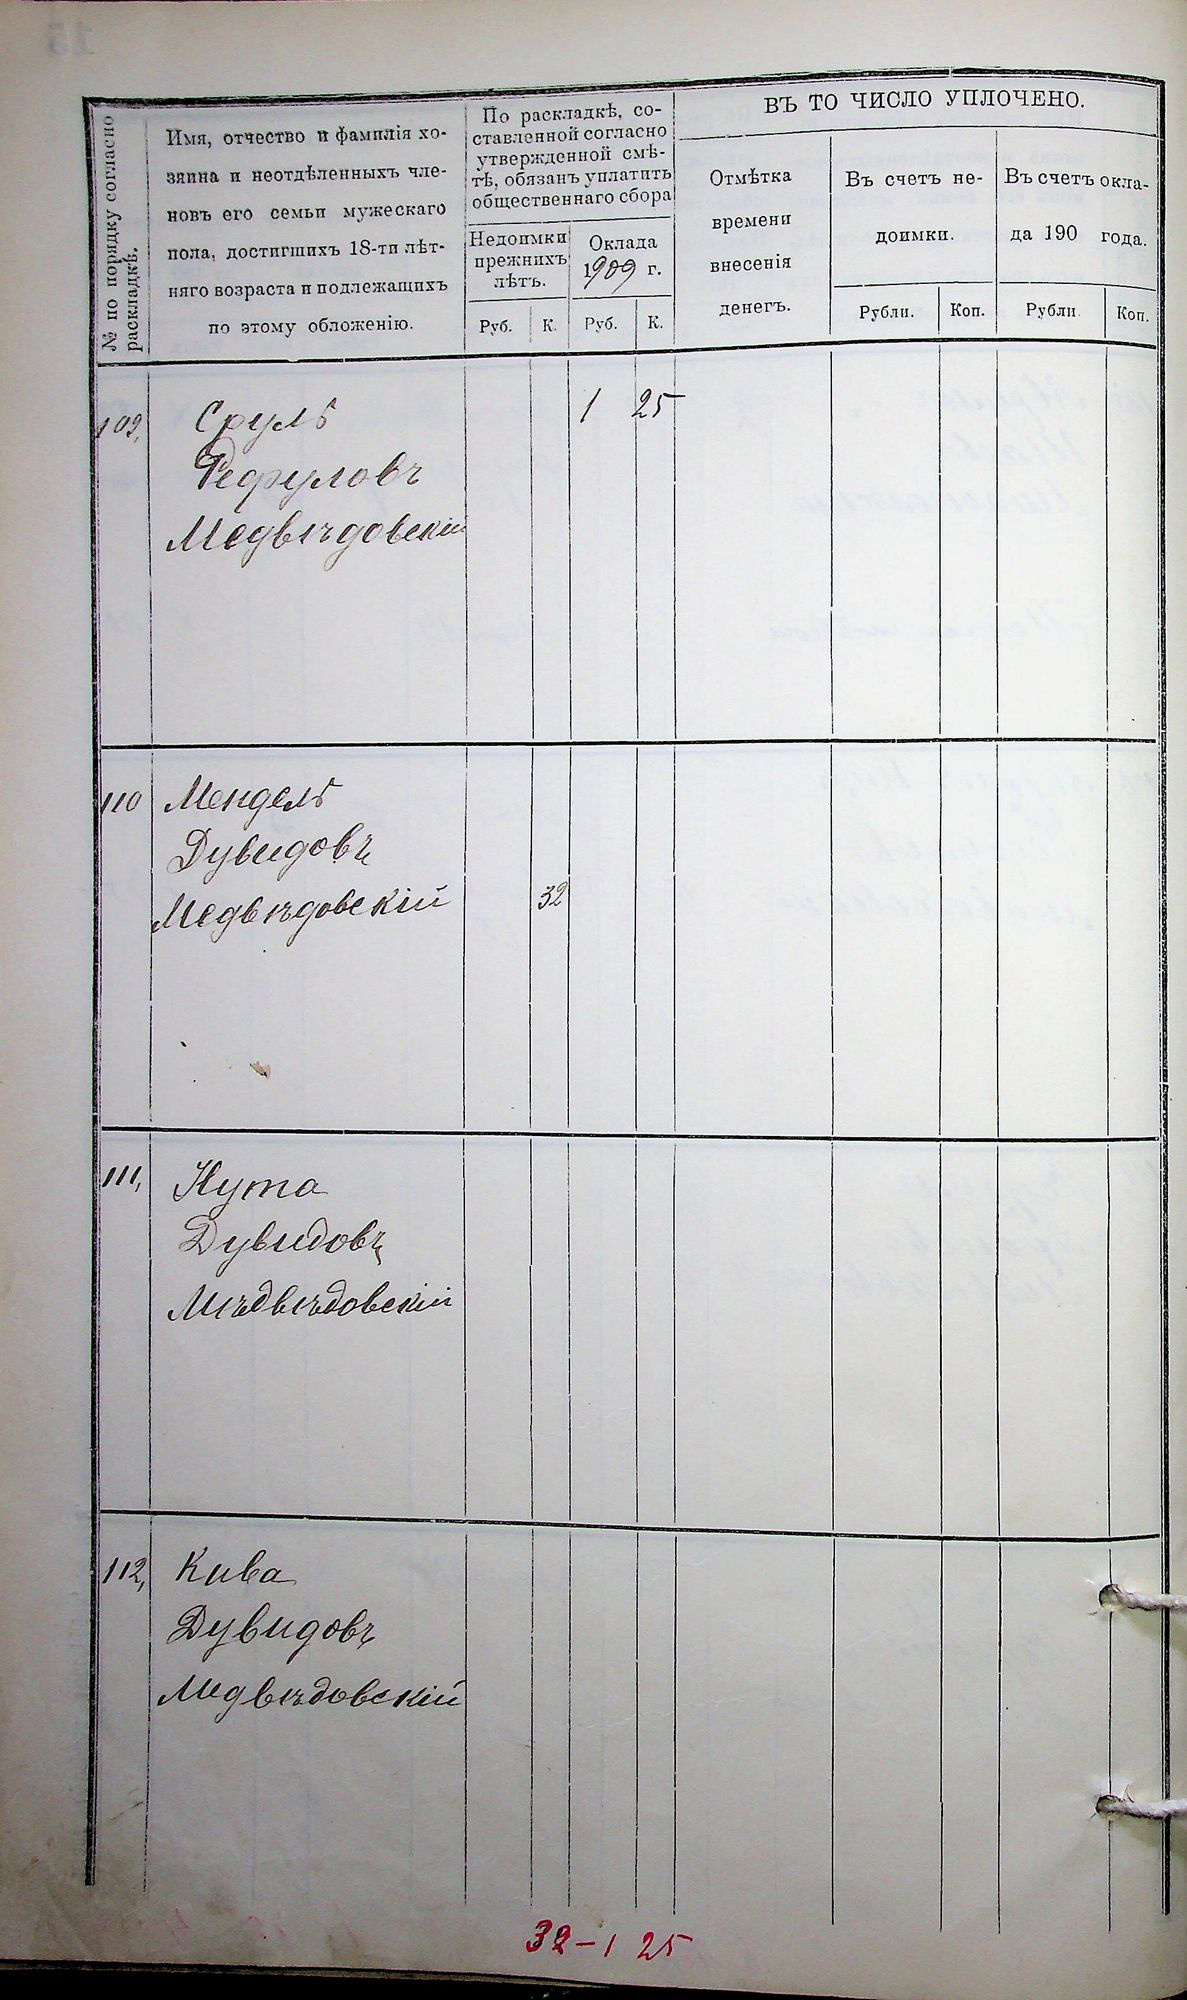 № по порядку согласно
раскладкѣ.
Имя, отчество и фамилія хо-
зяина и неотдѣленныхъ чле-
новъ его семьи мужескаго
пола, достигшихъ 18-ти лѣт-
няго возраста и подлежащихъ
по этому обложенію.
По раскладкѣ, со-
ставленной согласно
утвержденной смѣ-
тѣ, обязанъ уплатить
общественнаго сбора
Недоимки
прежнихъ
лѣтъ.
Руб. К.
Оклада
1909 г.
Руб. К.
ВЪ ТО ЧИСЛО УПЛОЧЕНО.
Отмѣтка
времени
внесенія
денегъ.
Въ счетъ не-
доимки.
Рубли. Коп.
Въ счетъ окла-
да 190 года.
Рубли. Коп.
109, Сруль 1 25
Медвѣдовскій
110 Мендель
Дувидовъ
Медвѣдовскій 32
111, Нута
Дувидовъ
Мѣдвѣдовскій
112, Кива
Дувидовъ
Медвѣдовскій
32-1 25